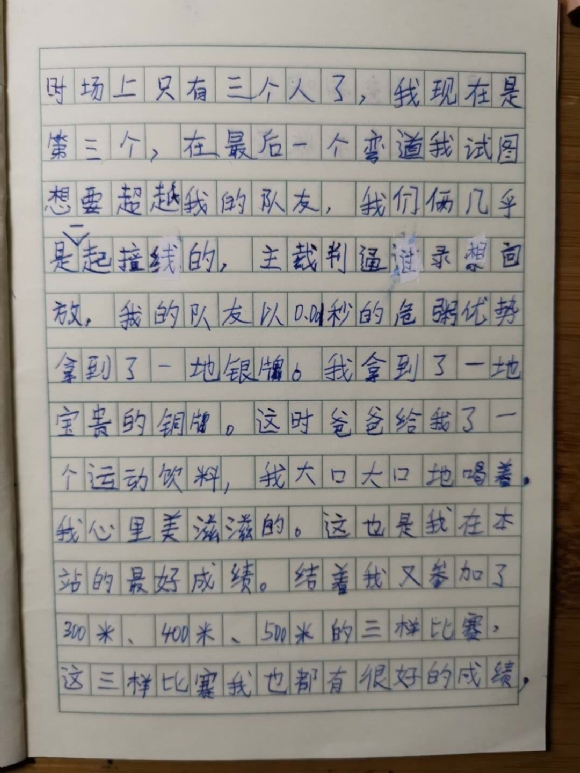 时场上只有三个人了，我现在是
第三个，在最后一个弯道我试图
想要超越我的队友，我们俩几乎
是一起撞线的，主裁判逼过录想回
放，我的队友以0.01秒的危弱优势
拿到了一地银牌。我拿到了一地
宝贵的铜牌。这时爸爸给我了一
个运动饮料，我大口大口地喝着，
我心里美滋滋的。这也是我在本
站的最好成绩。结着我又参加了
300米、400米、500米的三样比赛，
这三样比赛我也都有很好的成绩，